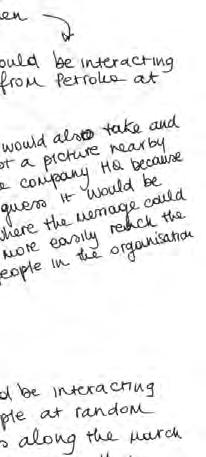 en
ould be interacting
from Petroke at
would also take and
st a picture nearby
e company HQ because
guess it would be
where the message could
more easily reach the
eople in the organisation
d be interacting
ple at random
s along the march